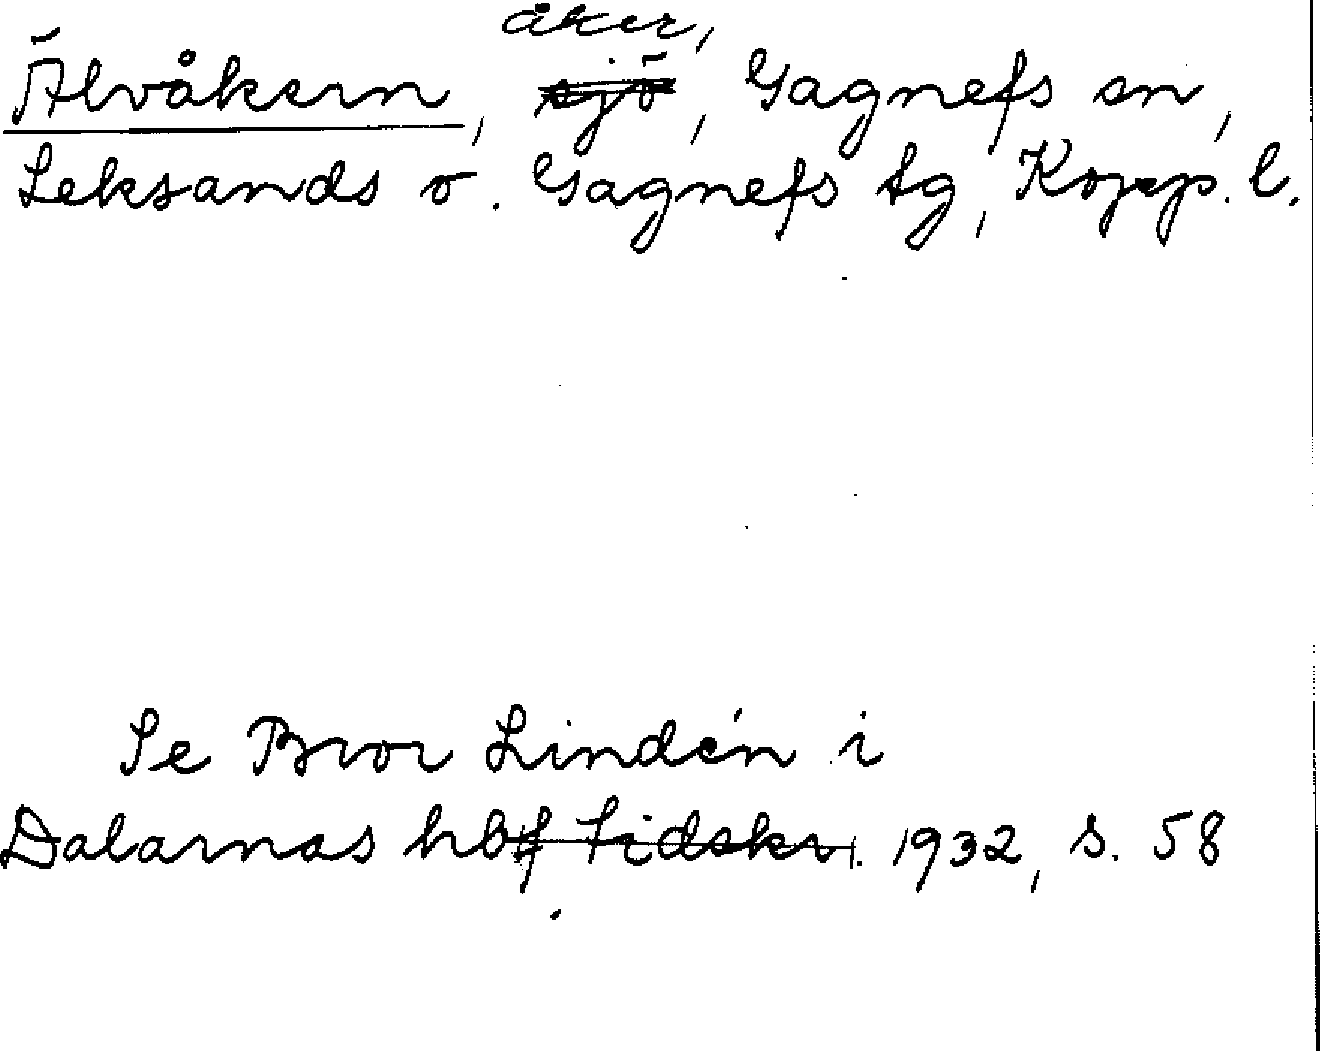 åker,
Älvåkern, sjö, Gagnefs sn,
Leksands o. Gagnefs tg, Kopp. l.
Se Bror Lindén i
Dalarnas hbf Tidskr. 1932, s. 58